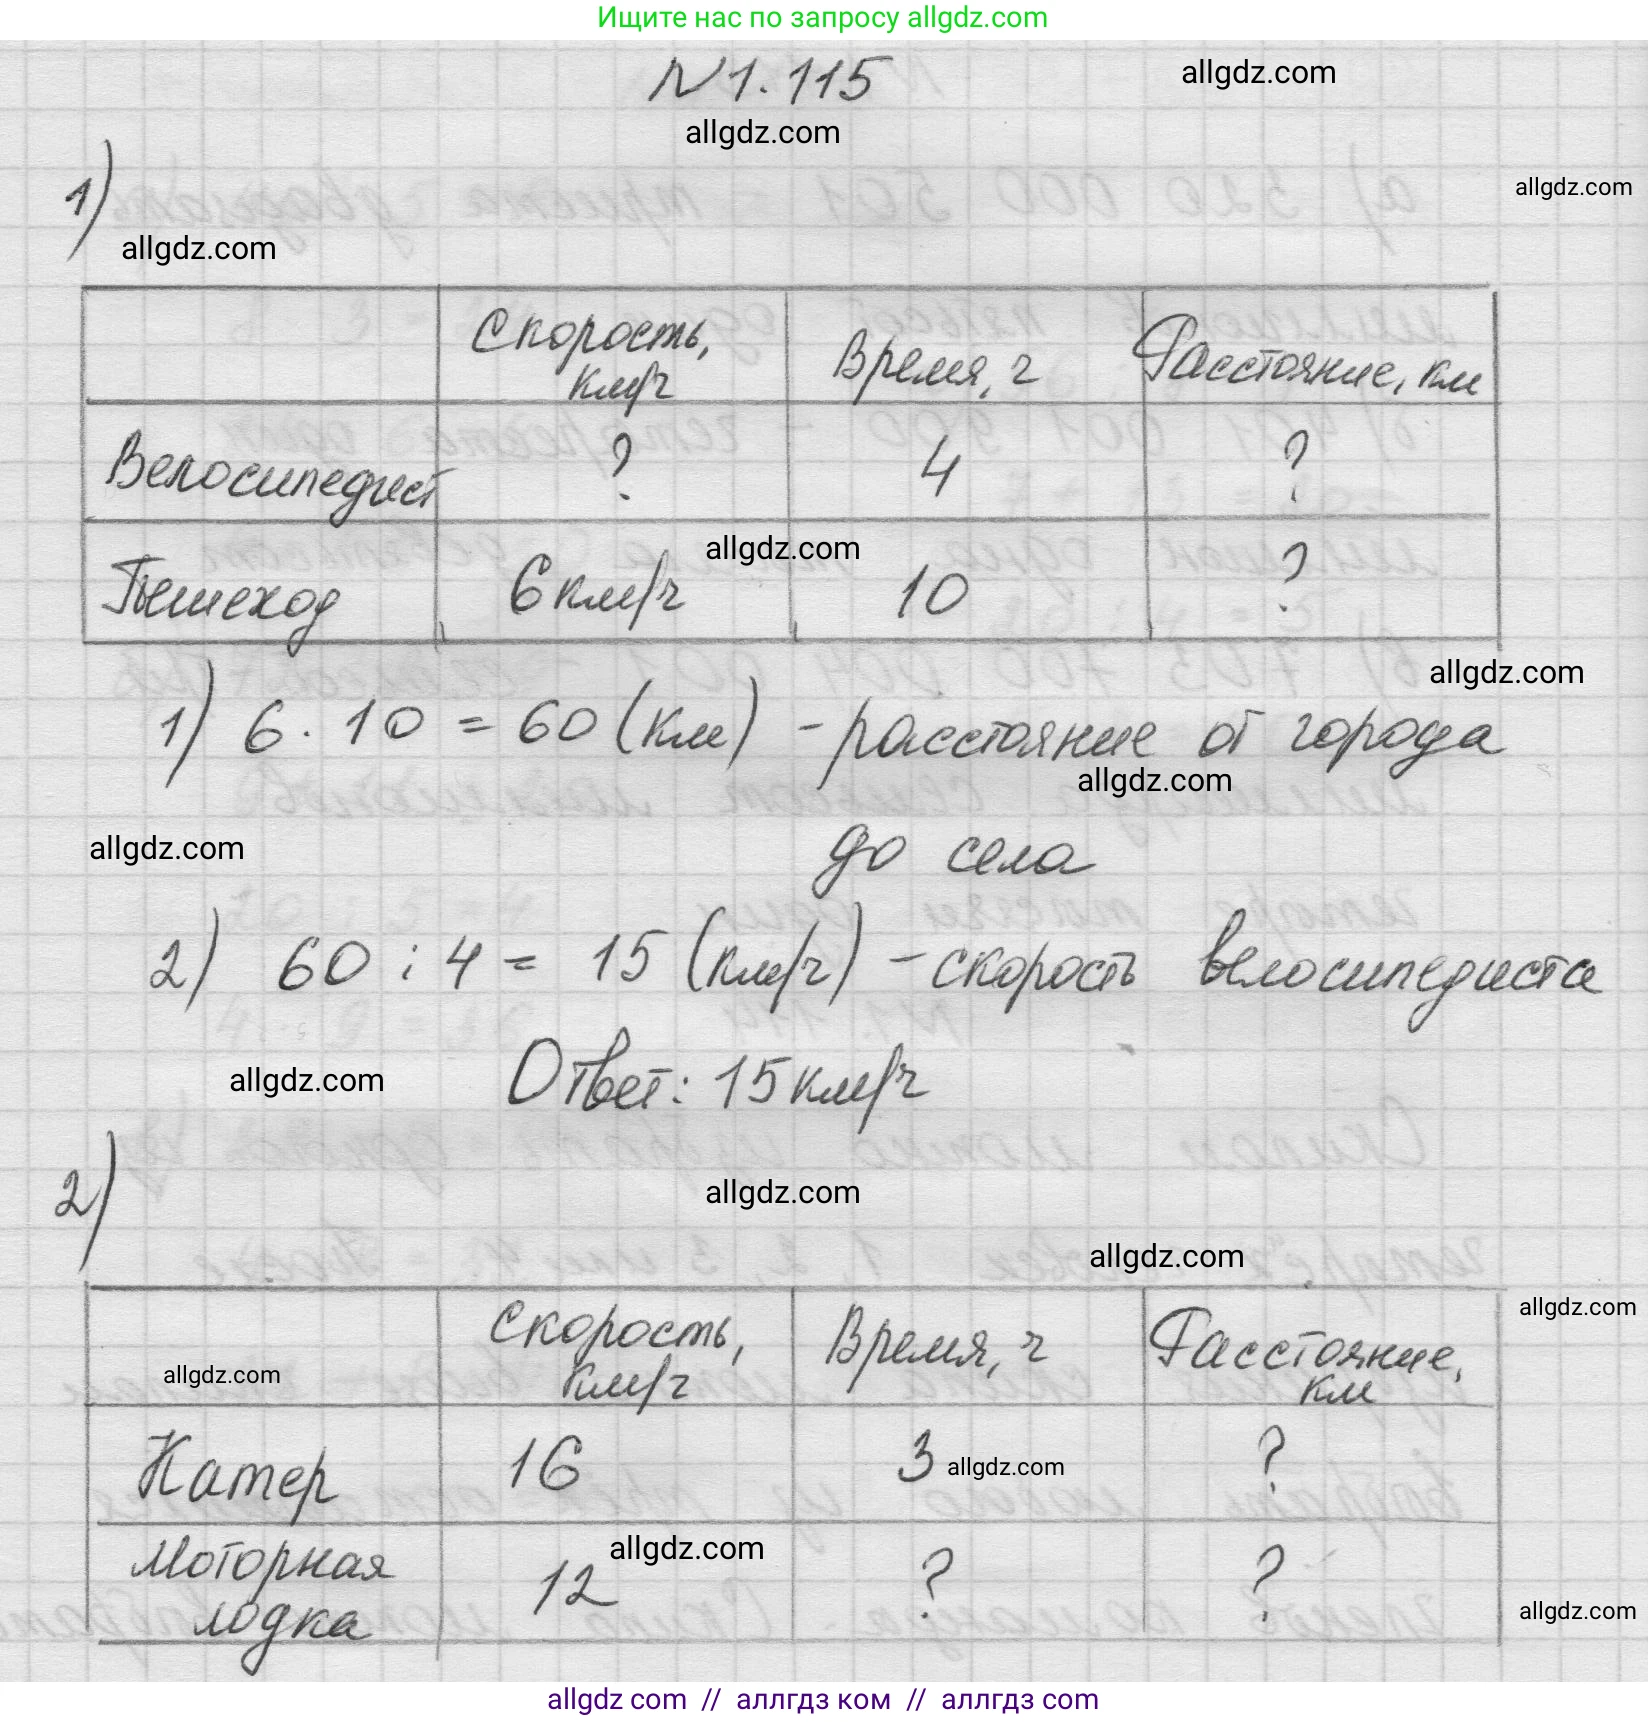 Ищите нас по запросу allgdz.com
N1.115
allgdz.com
allgdz.com
1)
allgdz.com
allgdz.com
Скорость, км/ч
Время, ч
Расстояние, км
Велосипедист
?
4
?
allgdz.com
Пешеход
6 км/ч
10
?
allgdz.com
1) 6 · 10 = 60 (км) - расстояние от города
allgdz.com
allgdz.com
до села
2) 60 : 4 = 15 (км/ч) - скорость велосипедиста
allgdz.com
Ответ: 15 км/ч
2)
allgdz.com
allgdz.com
allgdz.com
Скорость, км/ч
Время, ч
Расстояние, км
allgdz.com
Катер
16
3
allgdz.com
?
Моторная лодка
allgdz.com
12
?
?
allgdz.com
allgdz com // аллгдз ком // аллгдз com